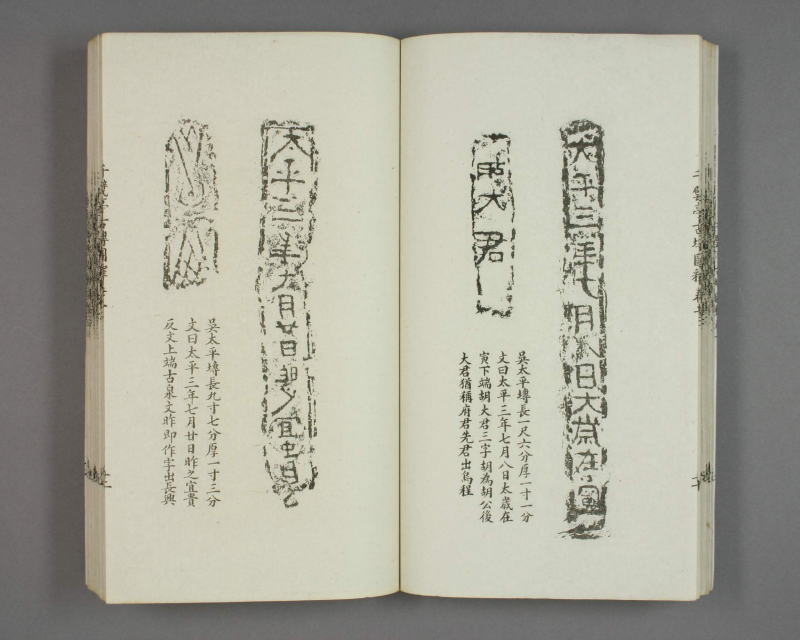 太平三年七月八日太歲在寅
胡大君
吳太平塼長一尺六分厚一寸一分
文曰太平三年七月八日太歲在
寅下端胡大君三字胡為胡公後
大君猶稱府君先君出烏程
太平三年 月廿日 之宜
吳太平塼長九寸七分厚一寸三分
文曰太平三年七月廿日昨之宜貴
反文上端古泉文昨即作字出長興